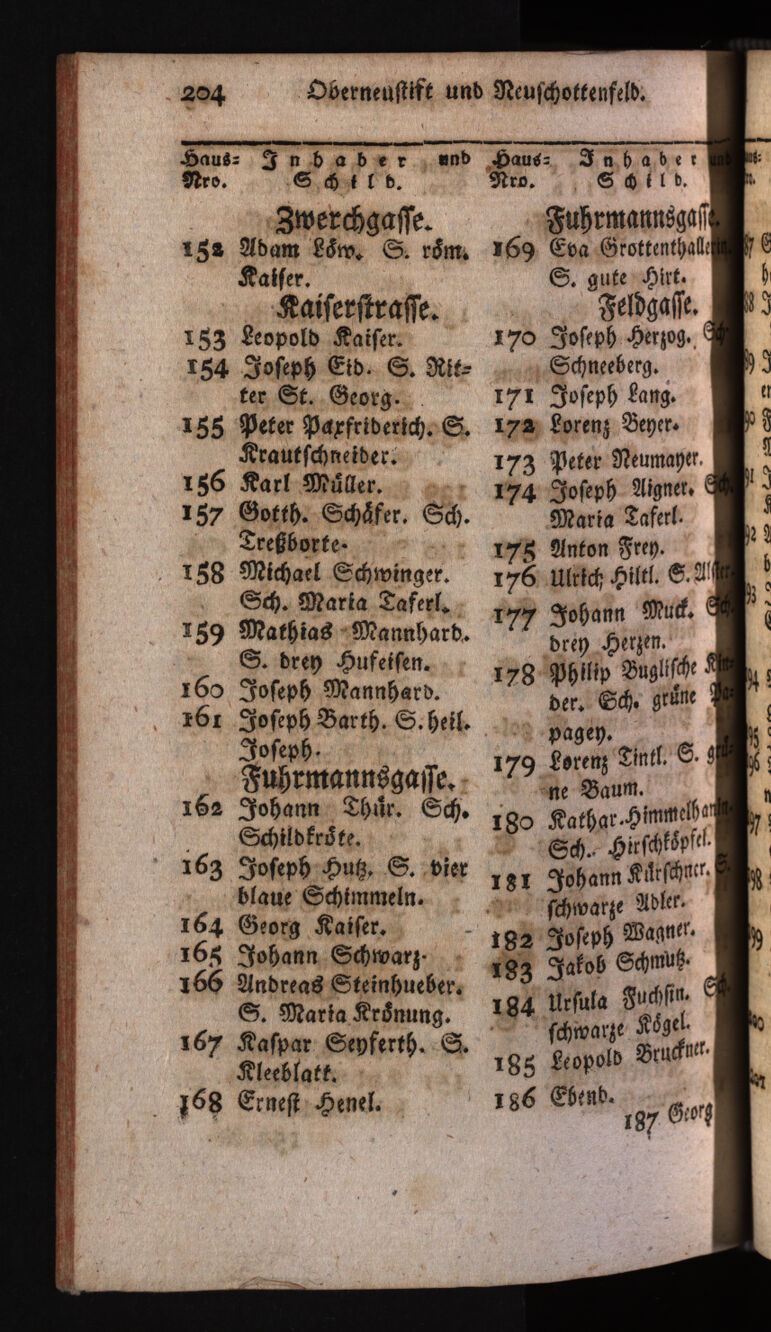 204 Oberneustift und Neuschottenfeld.
Haus= Inhaber und
Nro. Schild.
Zwerchgasse.
152 Adam Löw. S. röm.
Kaiser.
Kaiserstrasse.
153 Leopold Kaiser.
154 Joseph Eid. S. Rit=
ter St. Georg.
155 Peter Paxfriderich. S.
Krautschneider.
156 Karl Müller.
157 Gotth. Schäfer. Sch.
Treßborte.
158 Michael Schwinger.
Sch. Maria Taferl.
159 Mathias Mannhard.
S. drey Hufeisen.
160 Joseph Mannhard.
161 Joseph Barth. S. heil.
Joseph.
Fuhrmannsgasse.
162 Johann Thür. Sch.
Schildkröte.
163 Joseph Hutz. S. vier
blaue Schimmeln.
164 Georg Kaiser.
165 Johann Schwarz.
166 Andreas Steinhueber.
S. Maria Krönung.
167 Kaspar Seyferth. S.
Kleeblatt.
168 Ernest Henel.
Haus= Inhaber und
Nro. Schild.
Fuhrmannsgasse.
169 Eva Grottenthallerin
S. gute Hirt.
Feldgasse.
170 Joseph Herzog. Sch
Schneeberg.
171 Joseph Lang.
172 Lorenz Beyer.
173 Peter Neumayer.
174 Joseph Aigner. Sch.
Maria Taferl.
175 Anton Frey.
176 Ulrich Hiltl. S.
177 Johann Muck. Sch
drey Herzen.
178 Philip Buglische Kin=
der. Sch. grüne Pa=
pagey.
179 Lorenz Tintl. S. grü=
ne Baum.
180 Kathar.
Sch. Hirschköpfel.
181 Johann Kürschner. S.
schwarze Adler.
182 Joseph Wagner.
183 Jakob Schmutz.
184 Ursula Fuchsin. Sch
schwarze Kögel.
185 Leopold Bruckner.
186 Ebend.
187 Georg